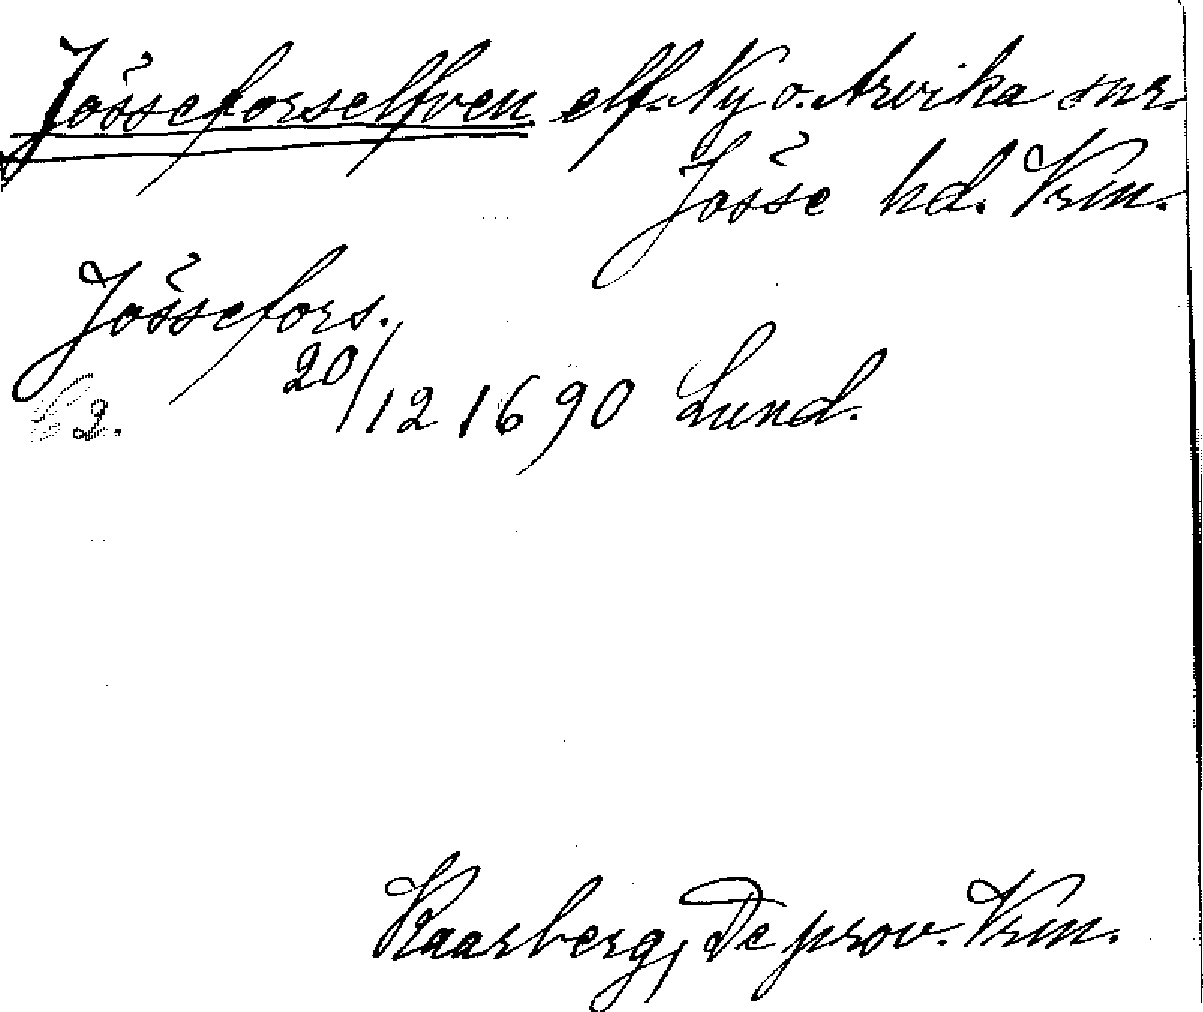 Jösseforselfven elf. Ny o. Arvika snr.
Jösse hd. Vrm.
Jössefors.
20/12 1690 Lund.
2.
Kaarberg, De prov. Vrm.